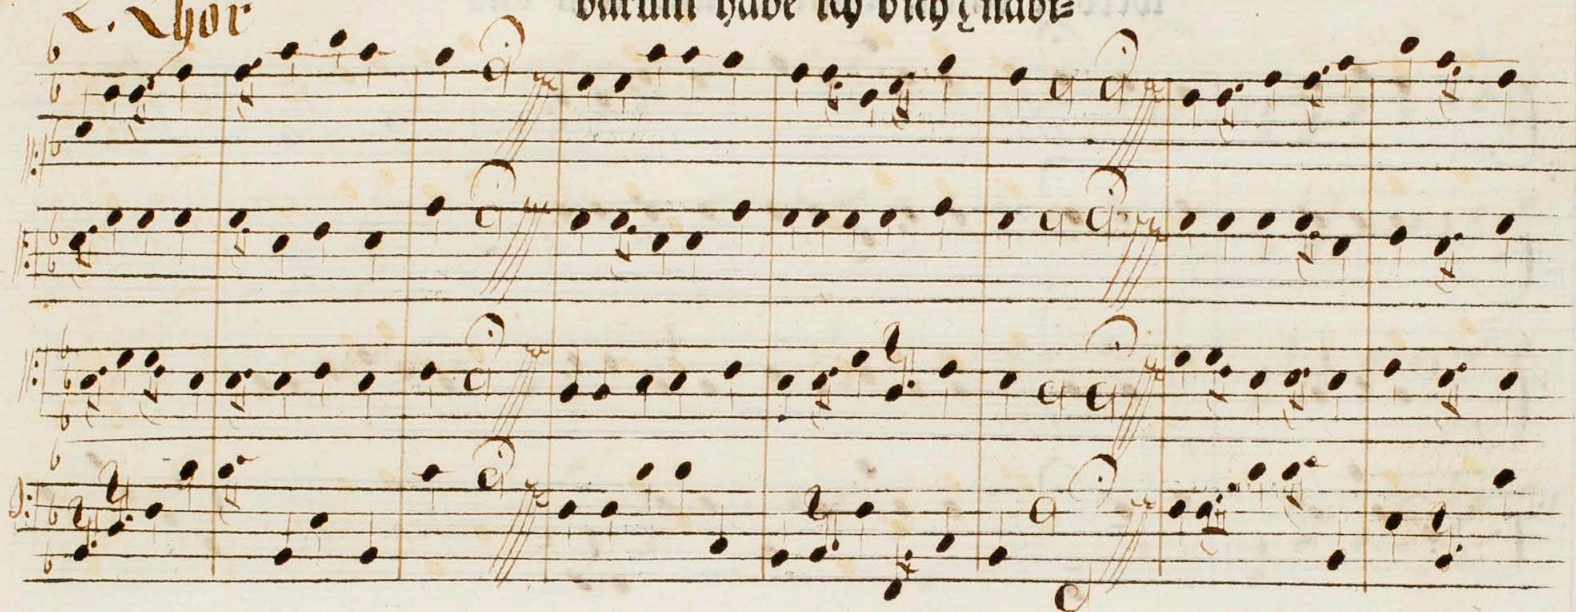 2. Chor
darum habe ich dich gnädi=